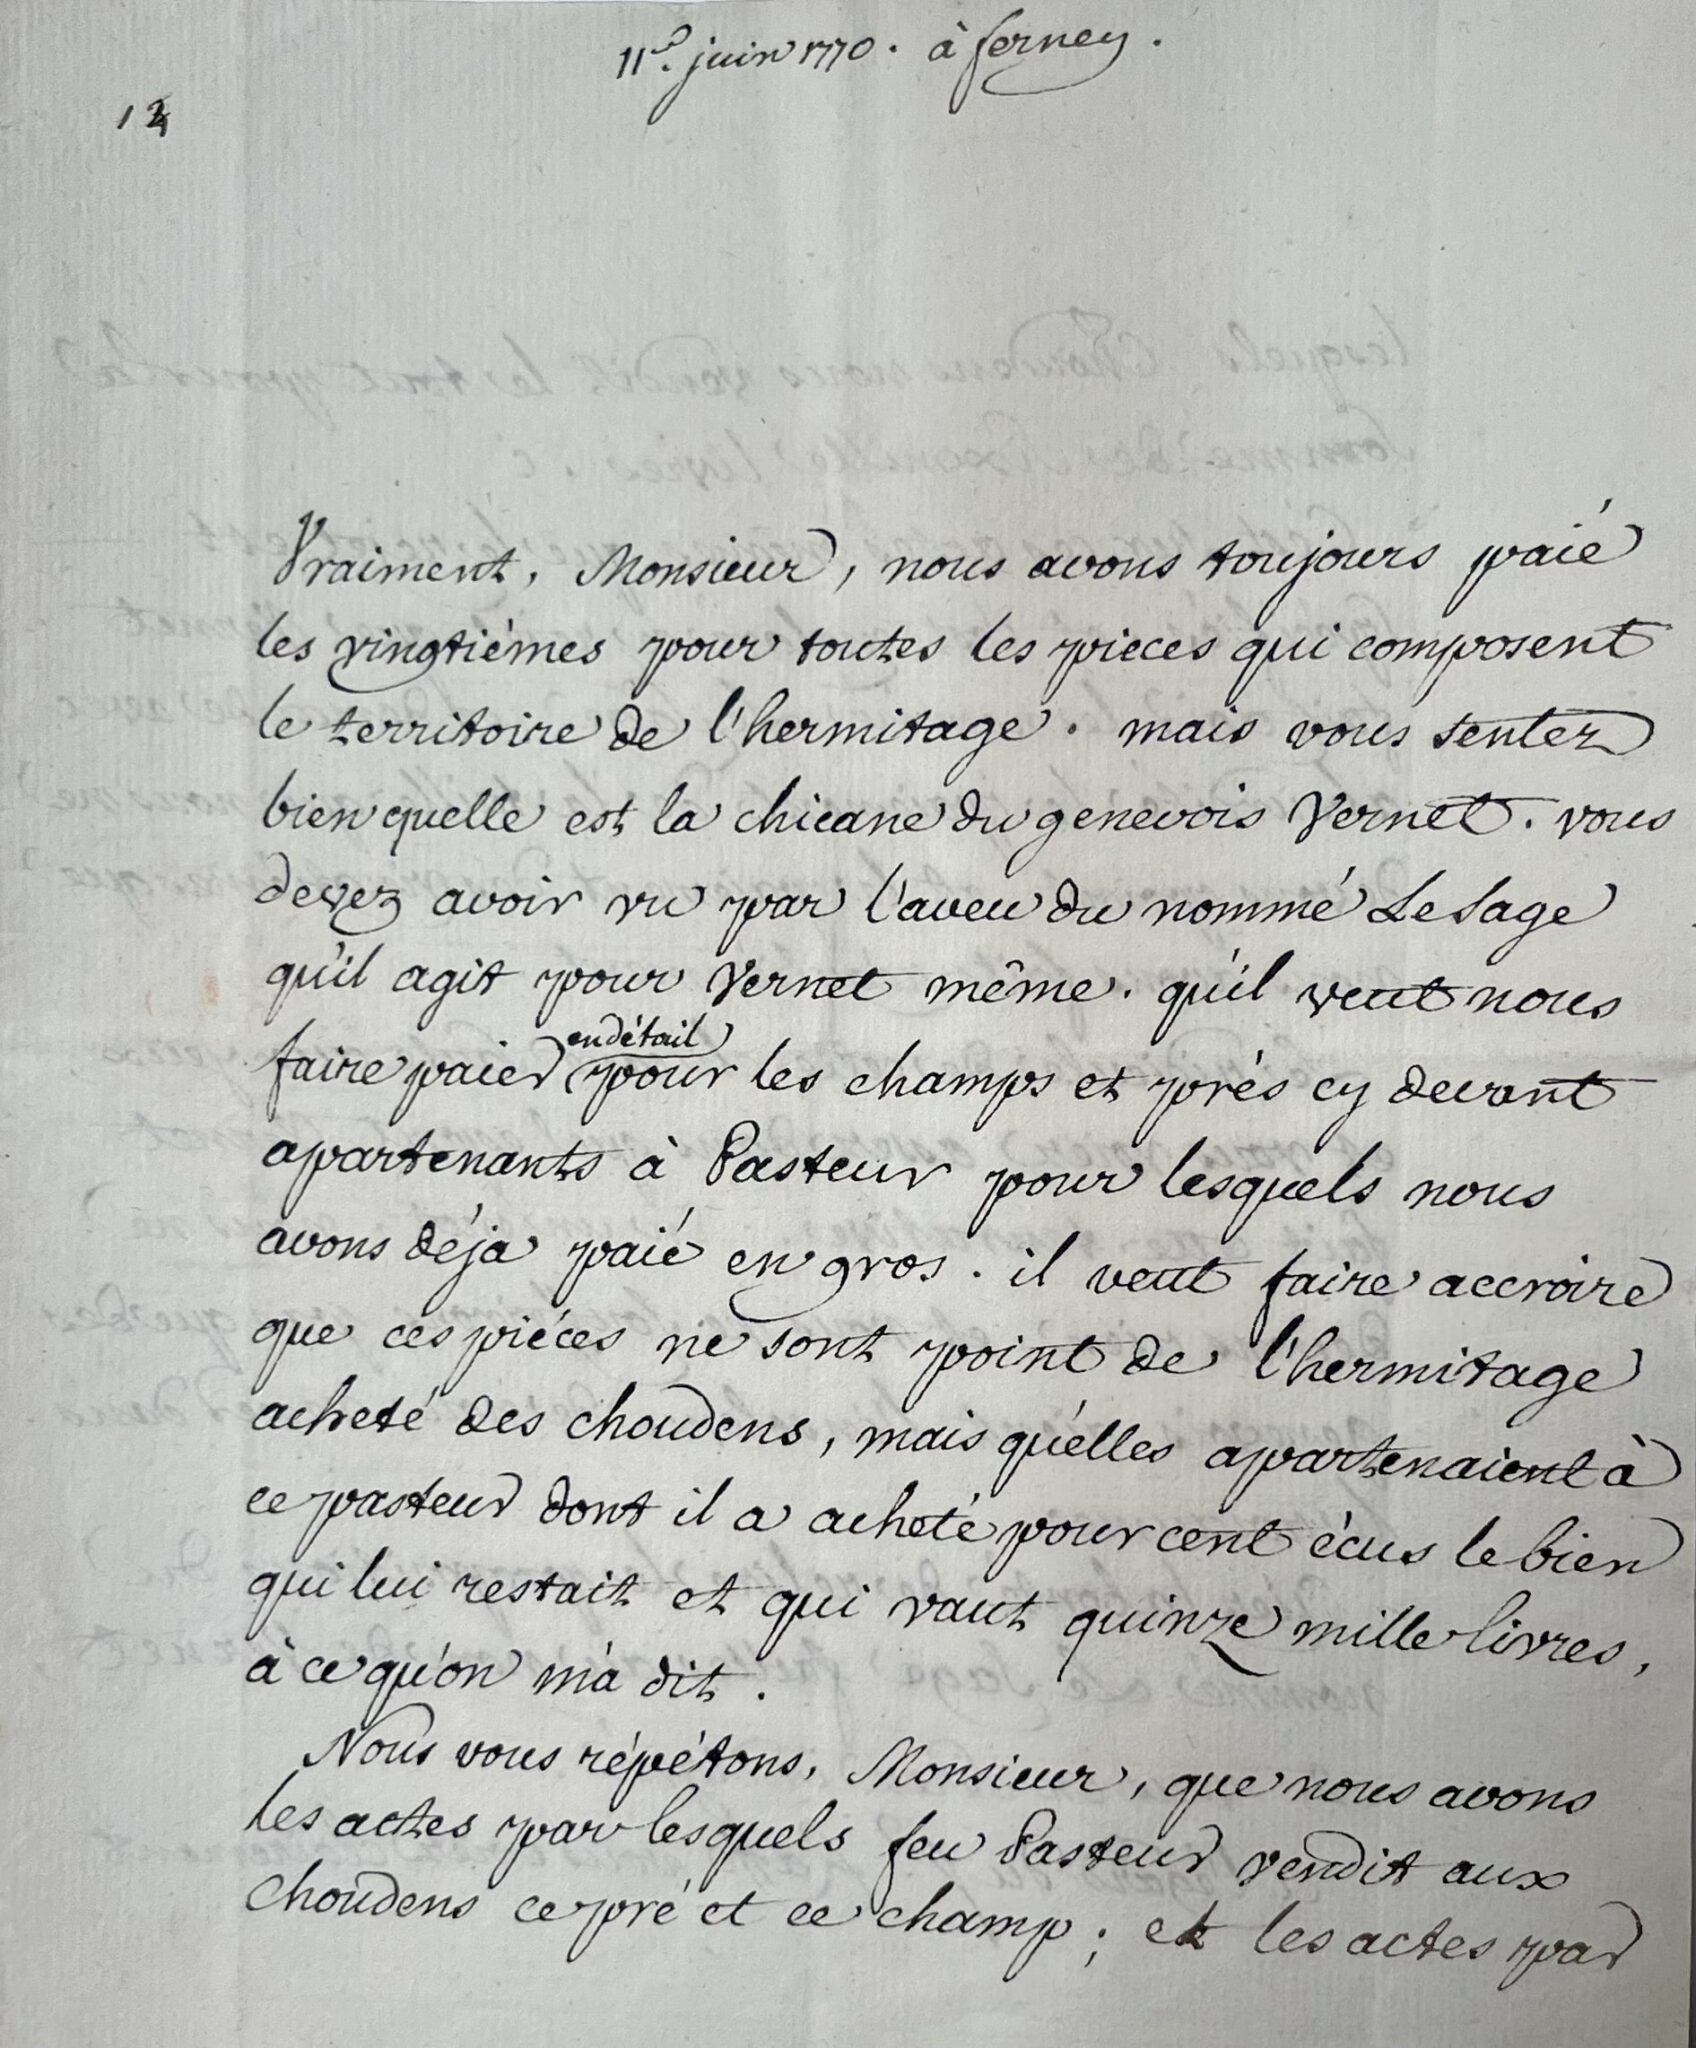 11e. juin 1770. à ferney.
12
Vraiment, Monsieur, nous avons toujours paié
les vingtiémes pour toutes les pieces qui composent
le territoire de l'hermitage. mais vous sentez
bien quelle est la chicane du genevois Vernet. vous
devez avoir vu par l'aveu du nommé Le Sage
qu'il agit pour Vernet même. qu'il veut nous
faire paier en détail pour les champs et prés cy devant
apartenants à Pasteur pour lesquels nous
avons déja paié en gros. il veut faire accroire
que ces piéces ne sont point de l'hermitage
acheté des choudens, mais qu'elles apartenaient à
ce pasteur dont il a acheté pour cent écus le bien
qui lui restait et qui vaut quinze mille livres,
à ce qu'on m'a dit.
Nous vous répétons, Monsieur, que nous avons
les actes par lesquels feu Pasteur vendit aux
Choudens ce pré et ce champ; et les actes par